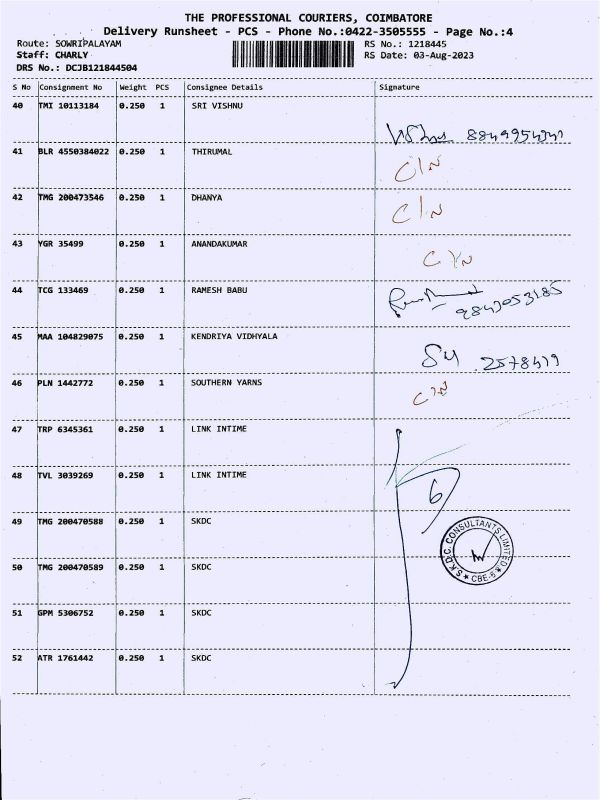 THE PROFESSIONAL COURIERS, COIMBATORE
Delivery Runsheet - PCS - Phone No.:0422-3505555 - Page No.:4
Route: SOWRIPALAYAM RS No.: 1218445
Staff: CHARLY RS Date: 03-Aug-2023
DRS No.: DCJB121844504
S No Consignment No Weight PCS Consignee Details Signature
40 TMI 10113184 0.250 1 SRI VISHNU
41 BLR 4550384022 0.250 1 THIRUMAL
C/N
42 TMG 200473546 0.250 1 DHANYA
C/N
43 YGR 35499 0.250 1 ANANDAKUMAR
C/N
44 TCG 133469 0.250 1 RAMESH BABU
9843053185
45 MAA 104829075 0.250 1 KENDRIYA VIDHYALA
46 PLN 1442772 0.250 1 SOUTHERN YARNS
C/N
47 TRP 6345361 0.250 1 LINK INTIME
48 TVL 3039269 0.250 1 LINK INTIME
6
49 TMG 200470588 0.250 1 SKDC
SKDC CONSULTANTS LIMITED
CBE-6
50 TMG 200470589 0.250 1 SKDC
51 GPM 5306752 0.250 1 SKDC
52 ATR 1761442 0.250 1 SKDC